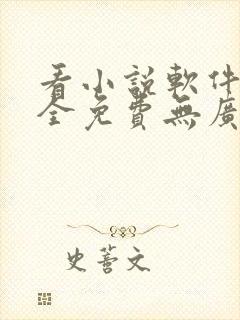 看小說軟件
全免費無廣
史薈文